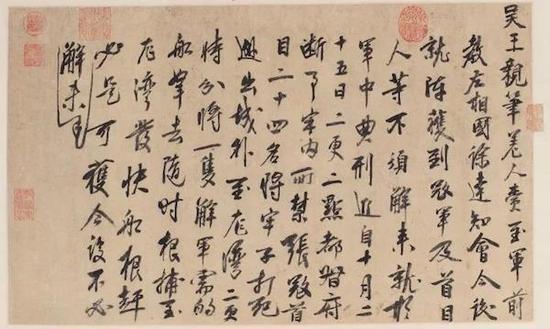 吴王親筆差人賫至軍前
教左相國徐達知會今後
就陣獲到寇軍及首目
人等不須解來就於
軍中典刑近自十月二
十五日二更二點都督府
斷事牢内所禁張寇首
目二十四名將牢子打死
越出城外至龍灣二更
時分將一隻解軍需的
船牽去隨時根捕至
龍灣發快船根趕
必是可獲今後不必
解來